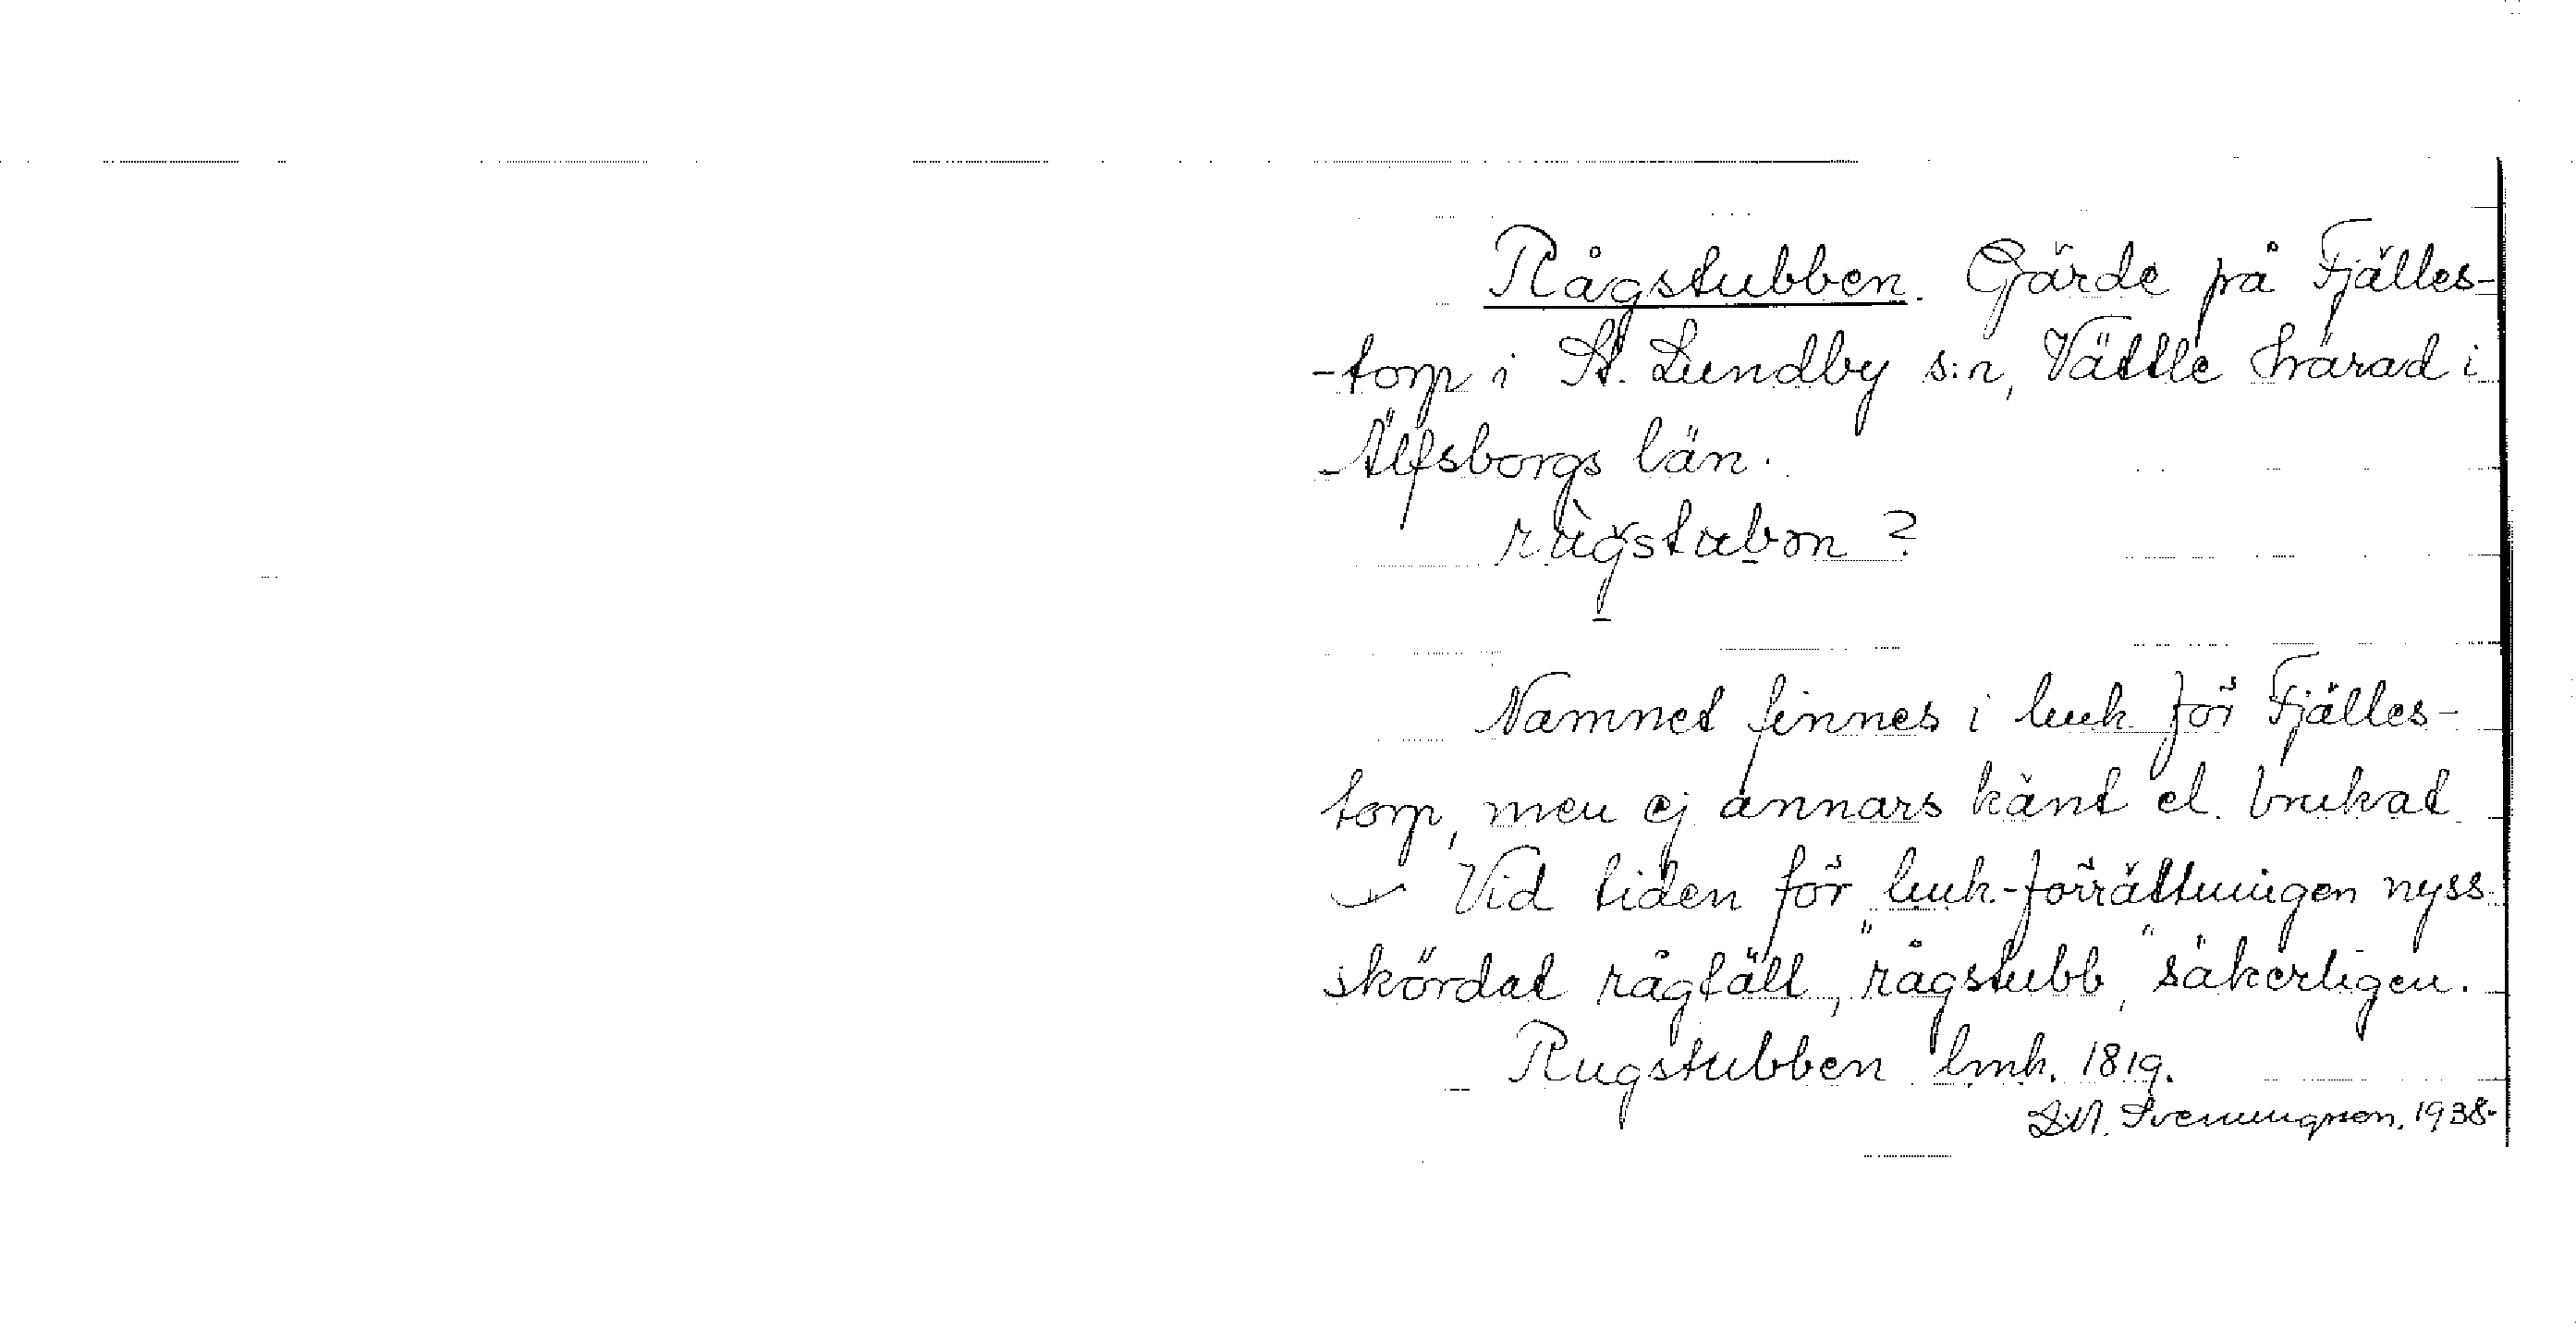 Rågstubben. Gärde på Fjälles-
-torp i St. Lundby s:n, Vättle härad i
Älfsborgs län.
rùgstubɘn ?
Namnet finnes i lmk för Fjälles-
torp, men ej annars känt el. brukat
Vid tiden för lmk.-förrättningen nyss
skördat rågfält, "rågstubb", säkerligen.
Rugstubben lmk. 1819.
Svenungsson. 1938.